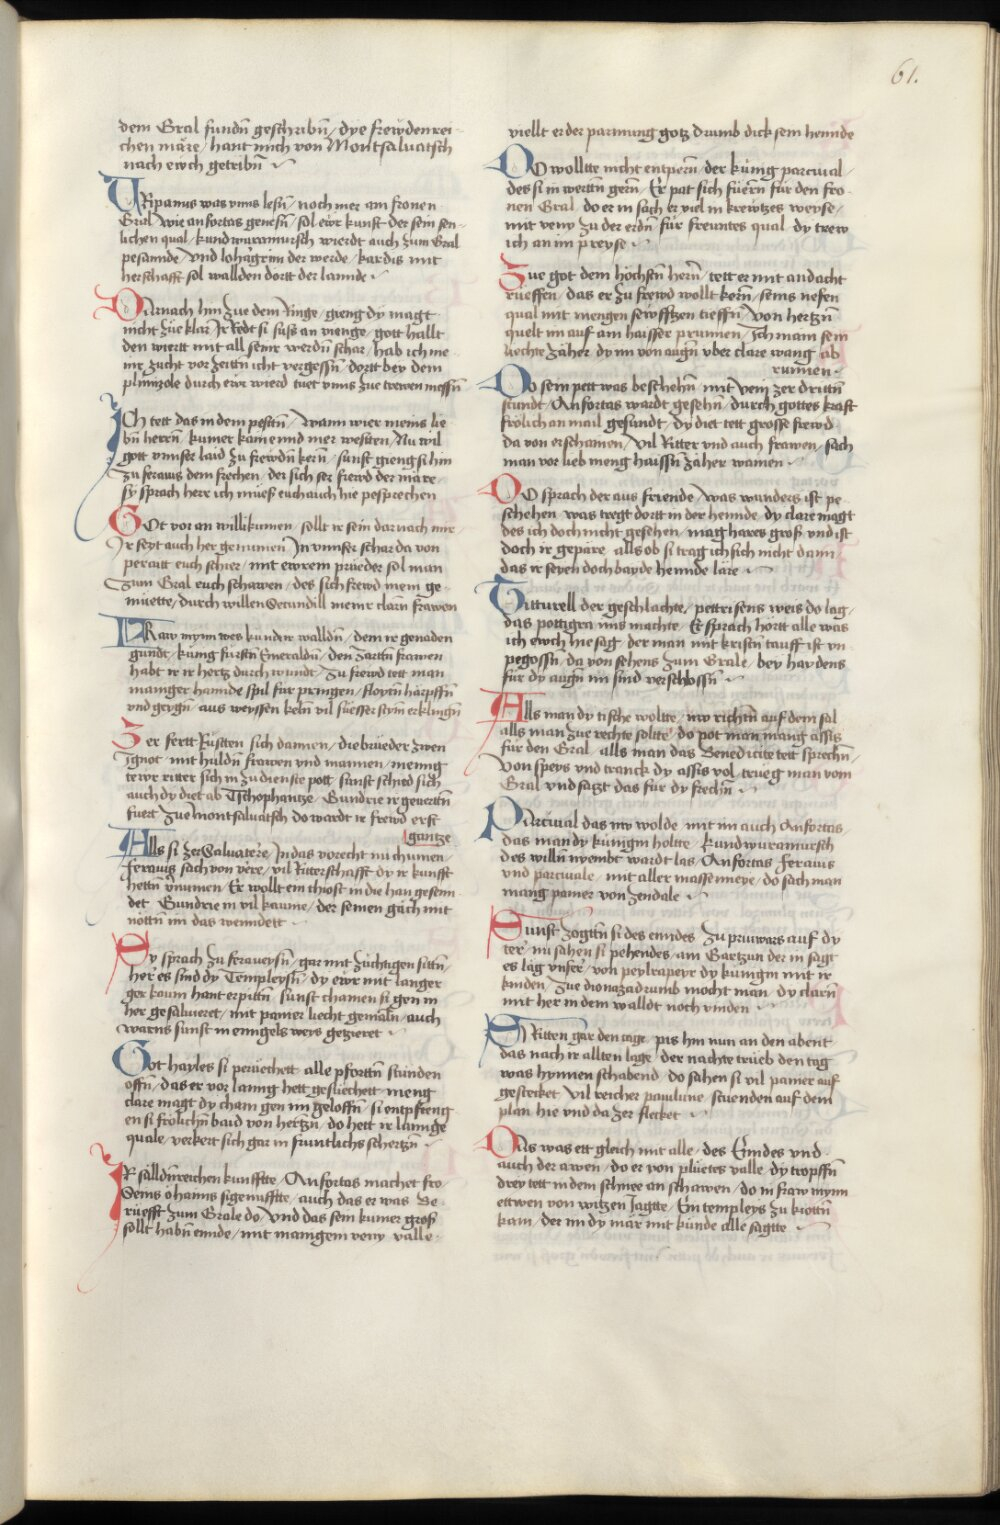 61.
dem Gral fundn̄ geschribn̄ / dye frewdenrei
chen märe / hant mich von Montsaluatsch
nach ewch getribn̄
TRipanus was vnns lesn̄ / noch mer am fronen
Gral / wie anfortas genesn̄ / sol ewr kunst der sein sen
lichen qual / kundwiramursch wierdt auch zum Gral
pesannde / vnd lohagrim der werde / kardis mit
herschafft sol wallden dortt der lannde
DArnach hin zue dem Ringe / gieng dy magt
nicht zue klar Jr Redt si süss an vienge / gott hallt
den wiertt mit all seinr werdn̄ schar / hab ich me
inr zucht vor zeittn̄ icht vergessn̄ / dortt bey dem
plimizole durch ewr wierd tuet vnns zue trewen messn̄
JCh tett das in dem pesttn̄ / Wann wier meins lie
bn̄ herrn̄ / kumer käme innd mer westten / Nu wil
gott vnnser laid zu frewdn̄ kern̄ / sunst gieng si hin
zu ferauis dem frechen / der sich ser frewd der märe
sy sprach herr ich müess euch auch hie pesprechen
GOt vor an willikumen / sollt ir sein darnach mir
Jr seyt auch her genumen Jn vnnser schar da von
peraitt euch schier / mit ewrem prueder sol man
zum Gral euch schawen / des sich frewd mein ge
müette / durch willen Secundill meinr clarn frawen
FRaw mynn wes kund ir walldn̄ / dem ir genaden
gundt / küng fürstn̄ Emeraldn̄ / den zarttn̄ frawen
habt ir ir hertz durch wundt / zu frewd tett man
maniger hannde spil für pringen / floytn̄ härpffn̄
vnd geygn̄ / aus weyssen keln̄ vil süesser stym̄ erklingn̄
Zer fertt Rüstten sich dannen / die brüeder zwen
ignot mit huldn̄ frawen vnd mannen / menng
tewr ritter sich in zu dienste pott sunst schied sich
auch dy diet ab Tschophantze / Gundrie ir geuertin̄
fuert zue Montsaluatsch do wardt ir frewd erst
gantze
ALls si zer Saluatere / Jn das vorecht nu chumen
ferauis sach von vere / vil Ritterschafft dy ir kunfft
hettn̄ vnumen Er wollt ein thiost in die han gesenn
det Gundrie in vil kaume / der seinen gäch mit
nöttn̄ im das wenndett
DY sprach zu ferauysn̄ / gar mit züchtigen sittn̄ /
her es sind dy Templeysn̄ / dy ewr mit langer
ger kaum hant erpittn̄ / sunst chamen si gen in
her gesaluieret / mit paner liecht gemaln̄ / auch
warns sunst in enngels weys gezieret
GOt hayles si peruechett alle pforttn̄ stunden
offn̄ / das er vor lanng hett gesliechett meng
clare magt dy cham gen im geloffn̄ / si entpfieng
en si frölichn̄ baid von hertzn̄ / do hett ir lannge
quale / verkert sich gar in fruntlichs schertzn̄
JR sälldn̄reichen kunfftte / Anfortas machet fro
Seins öhanns sigenufftte / auch das er was Be
rüefft zum Grale do / Vnd das sein kumer gros
sollt habn̄ ennde / mit manngem veny valle
viellt er der parmung gotz drumb dick sein hennde
DO wolltte nicht entpern̄ / der künig parciual
des si in wertin̄ gern̄ / Er pat sich füern̄ für den fro
nen Gral / do er in sach er viel in krewtzes weyse /
mit veny zu der erdn̄ / für freuntes qual dy trew
ich an im preyse
Zue got dem höchstn̄ hern̄ / tett er mit andacht
rüeffen / das er zu frewd wollt kern̄ / seins nefen
qual mit mengen sewfftzen tieffn̄ / von hertzn̄
quelt im auf am haisser prunnen / Jch main sein
liechte zäher / dy im von augn̄ vber clare wang ab
runnen
DO sein pett was beschehn̄ / mit veni zer drittn̄
stundt / Anfortas wardt gesehn̄ / durch gottes krafft
frölich an mail gesundt / dy diet tett grosse frewd
da von erschainen / vil Ritter vnd auch frawen / sach
man vor lieb meng haissn̄ zäher wainen
DO sprach der aus friende / was wunders ist pe
schehen was tregt dortt in der hennde dy clare magt
des ich doch nicht gesehen / mag hares gros vnd ist
doch ir gepäre alls ob si trag ich sich nicht dann
das ir seyen doch bayde hennde läre
TItturell der geschlachte / pettrisens weis do lag /
das pottigra ims machte / Er sprach hortt alle was
ich ewch hie sag der man mit kristn̄ tauff ist vn
pegossn̄ / da von sehens zum Grale / bey haydens
für dy augn̄ im sind verschlossn̄
ALls man dy tische woltte / nw richtn̄ auf dem sal
alls man zue rechte soltte / do pot man mang assis
für den Gral alls man das Benedicite tett sprechn̄
Von speys vnd tranck dy assis vol trueg man vom
Gral vnd sagt das für dy frechn̄
PArciual das nw wolde mit im auch Anfortas
das man dy künigin holtte / kundwiramursch
des willn̄ nyembt wardt las / Anfortas ferauis
vnd parciuale / mit aller massenneye / do sach man
mang paner von zendale
SUnst zogttn̄ si des enndes zu pruuars auf dy
ter / nu sahen si pehendes / am Gartzun der in sagt
es lag vnser / von peylrapeyr dy künigin mit ir
kinden / zue dionaza drumb mocht man / dy clarn̄
mit her in dem walldt noch vinden
SI Ritten gar den tage / pis hin nun an den abent
das nach ir allten lage / der nachte trüeb den tag
was hynnen schabend do sahen si vil paner auf
gestecket vil reicher paulune stuenden auf dem
plan hie vnd da zer flecket
DAs was ett gleich mit alle / des Enndes vnd
auch der awen / do er von pluetes valle / dy tropffn̄
drey tett in dem schnee an schawen / do in fraw mynn
ettwen von witzen Jagtte / Ein templeys zu riottn̄
kam / der im dy mär mit künde alle sagtte